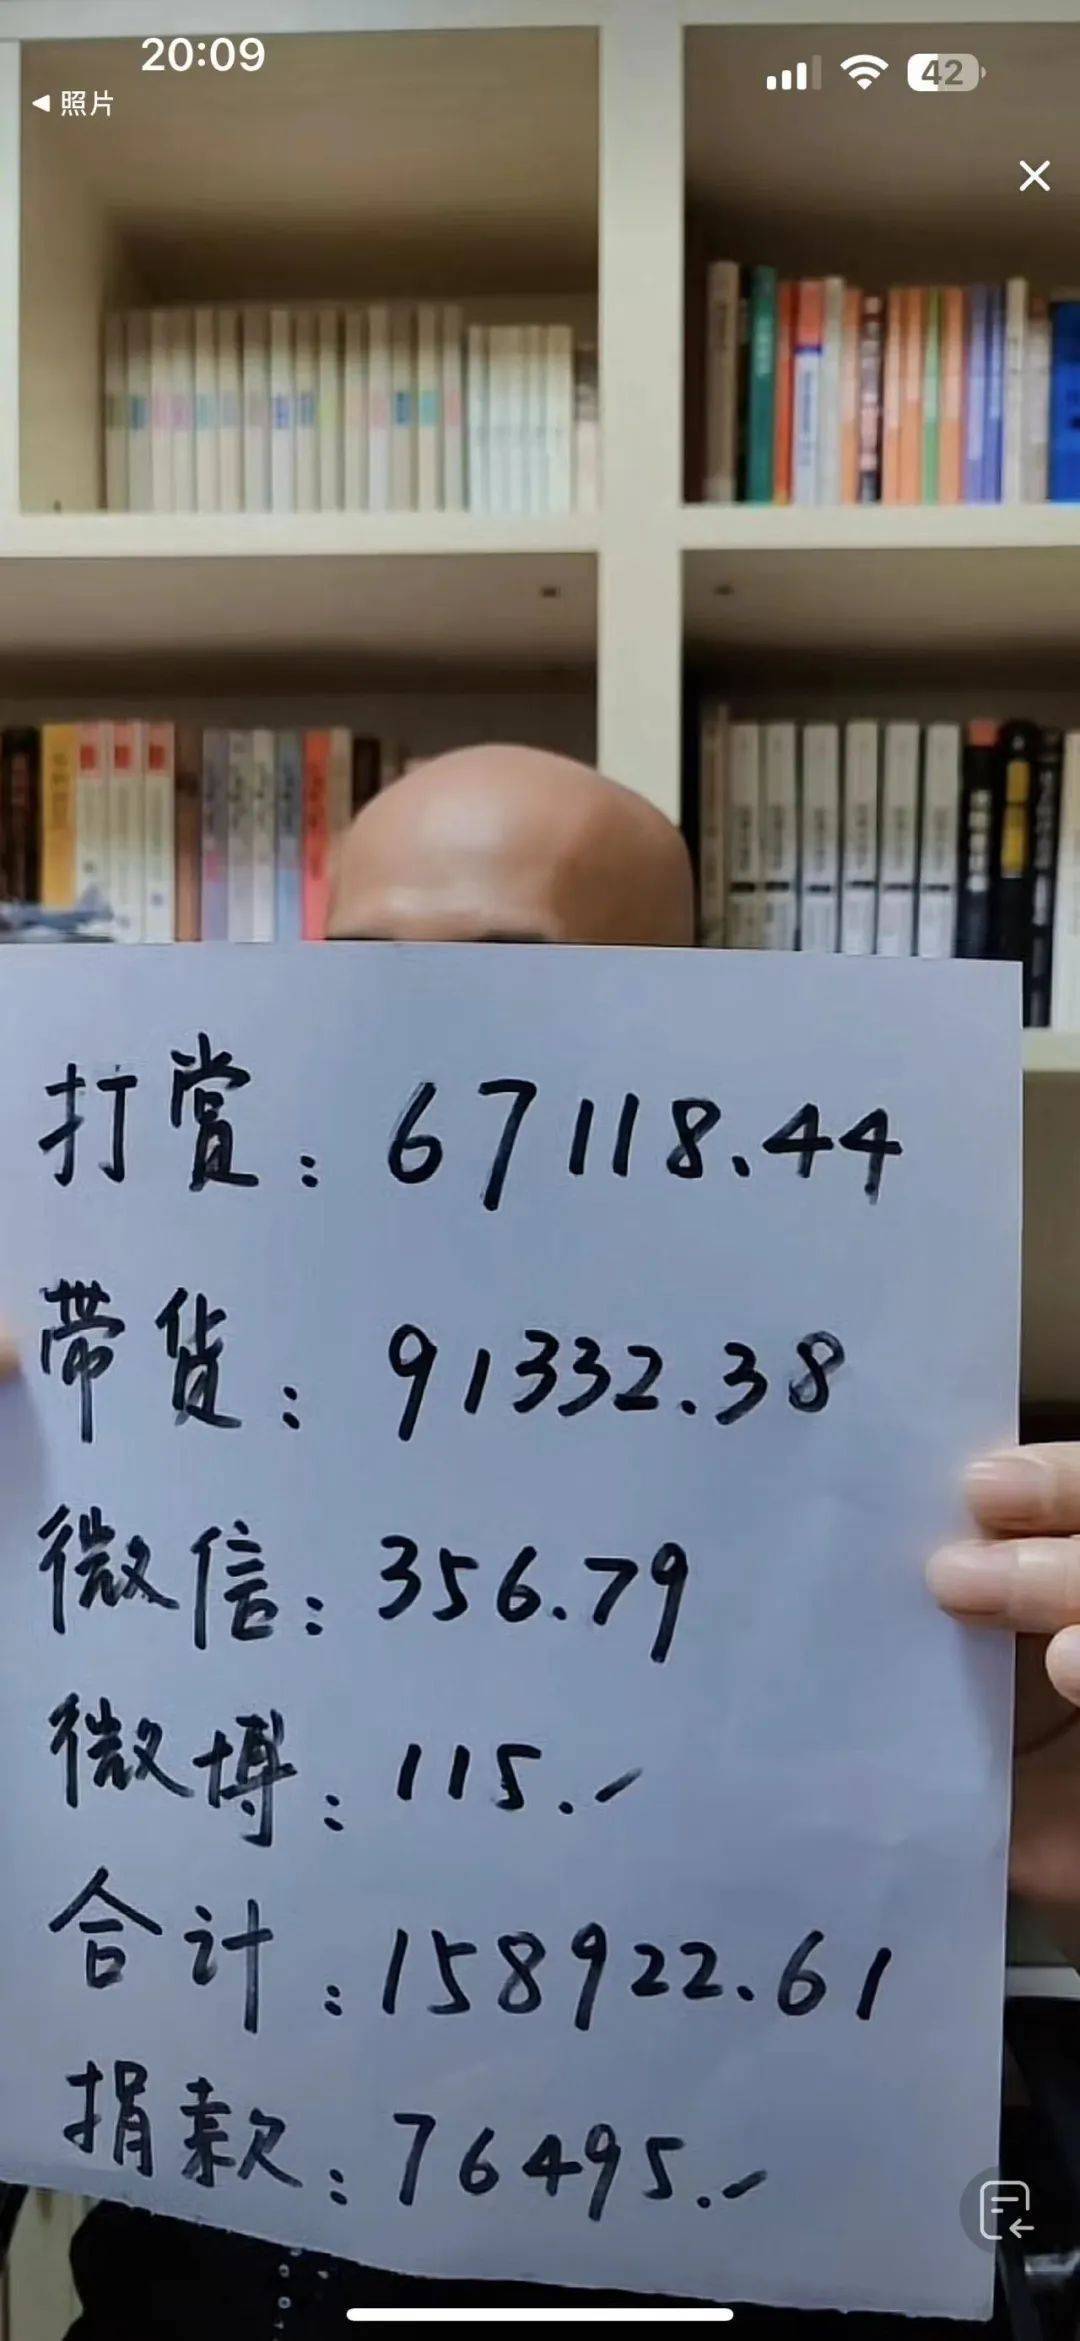 20:09
42
◀ 照片
打赏：67118.44
带货：91332.38
微信：356.79
微博：115.-
合计：158922.61
捐款：76495.-